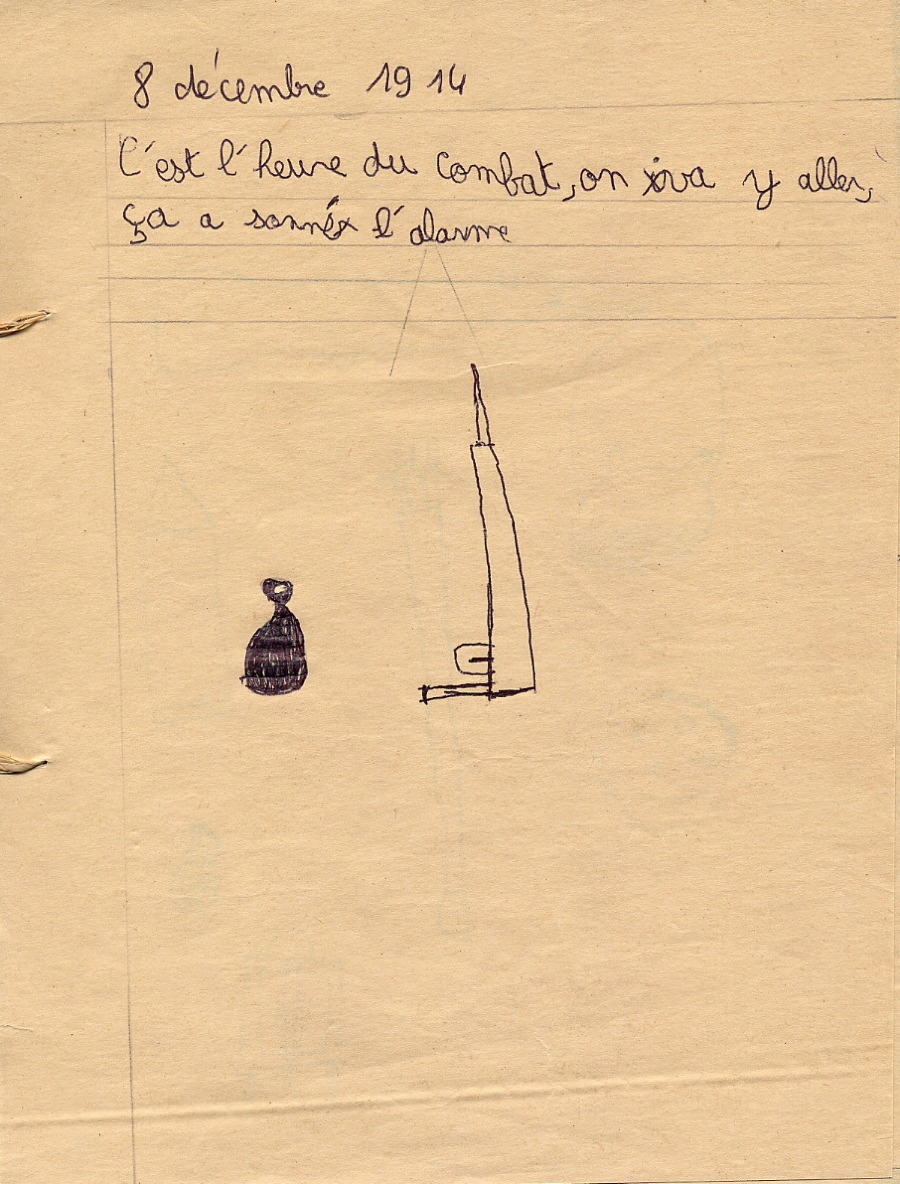 8 décembre 1914
C'est l'heure du combat, on va y aller,
ça a sonné l'alarme